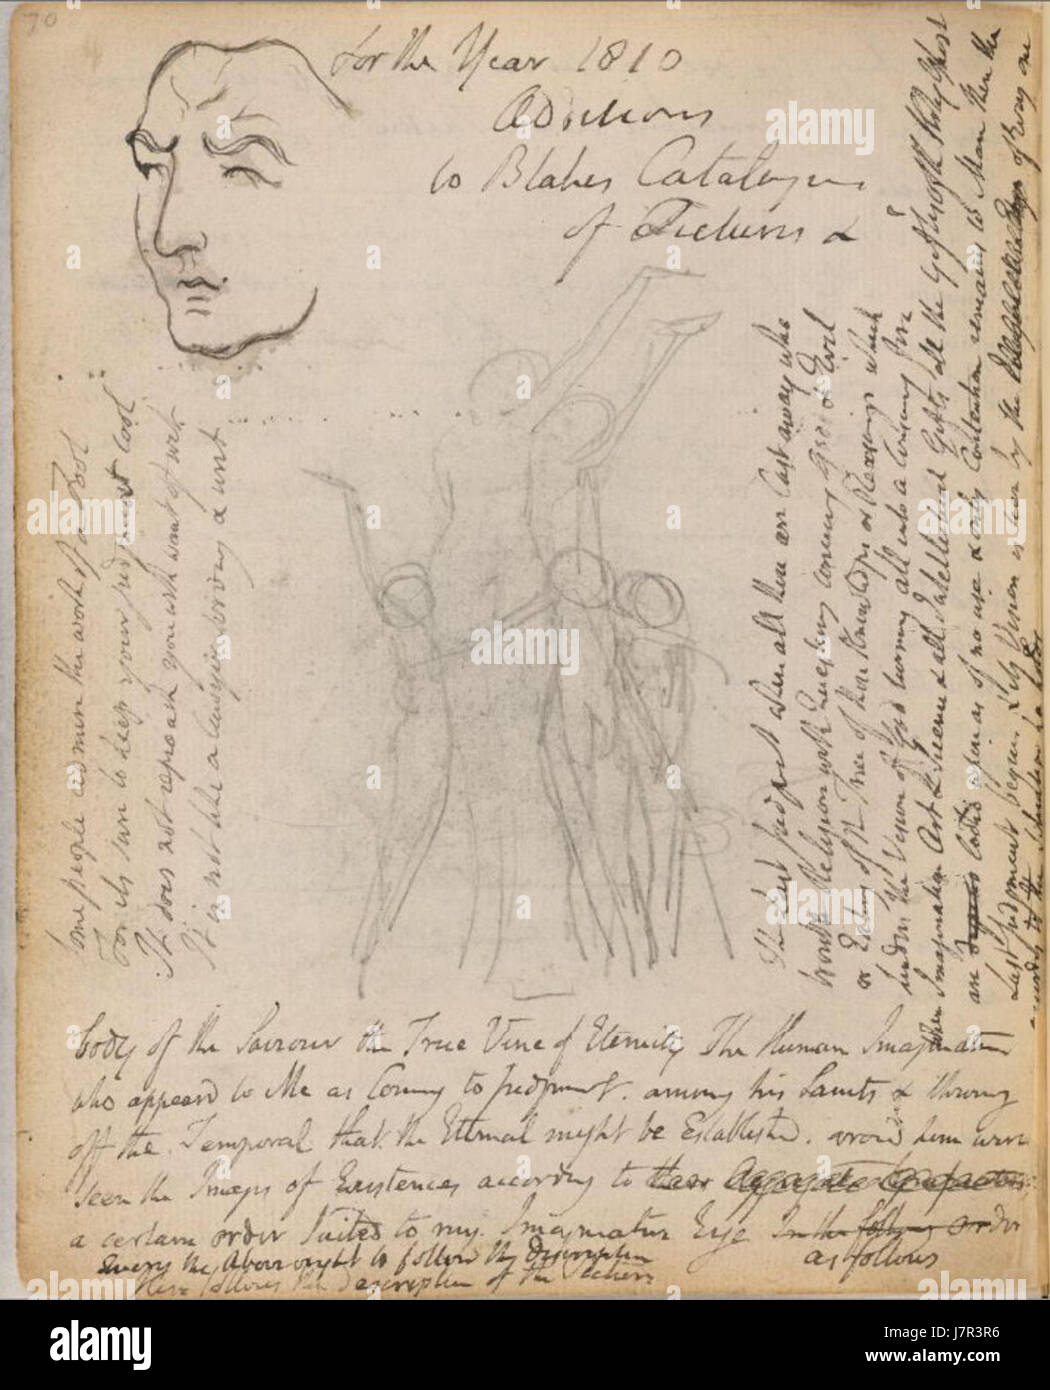 70
For the Year 1810
Additions
to Blakes Catalogue
of Pictures &
Some people admire the work of a Fool
For its sure to keep your judgment cool
It does not reproach you with want of wit
It is not like a lawyer serving a writ
The Last Judgment when all those are Cast away who
trouble Religion with Questions concerning Good & Evil
or Eating of the Tree of those Knowledges or Reasonings which
hinder the Vision of God turning all into a Consuming Fire
When Imagination Art & Science & all Intellectual Gifts all the Gifts of the Holy Ghost
are lookd upon as of no use & only Contention remains to Man then the
Last Judgment begins & its Vision is seen by the of Every one
according to the situation he holds
body of the Saviour the True Vine of Eternity The Human Imagination
who appeard to Me as Coming to Judgment. among his Saints & throwing
off the Temporal that the Eternal might be Established. around him were
seen the Images of Existences according to
a certain order Suited to my Imaginative Eye In the following order
as follows
Query the Above ought to follow the description
Here follows the description of the Picture
alamy
a
alamy
Image ID: J7R3R6
www.alamy.com